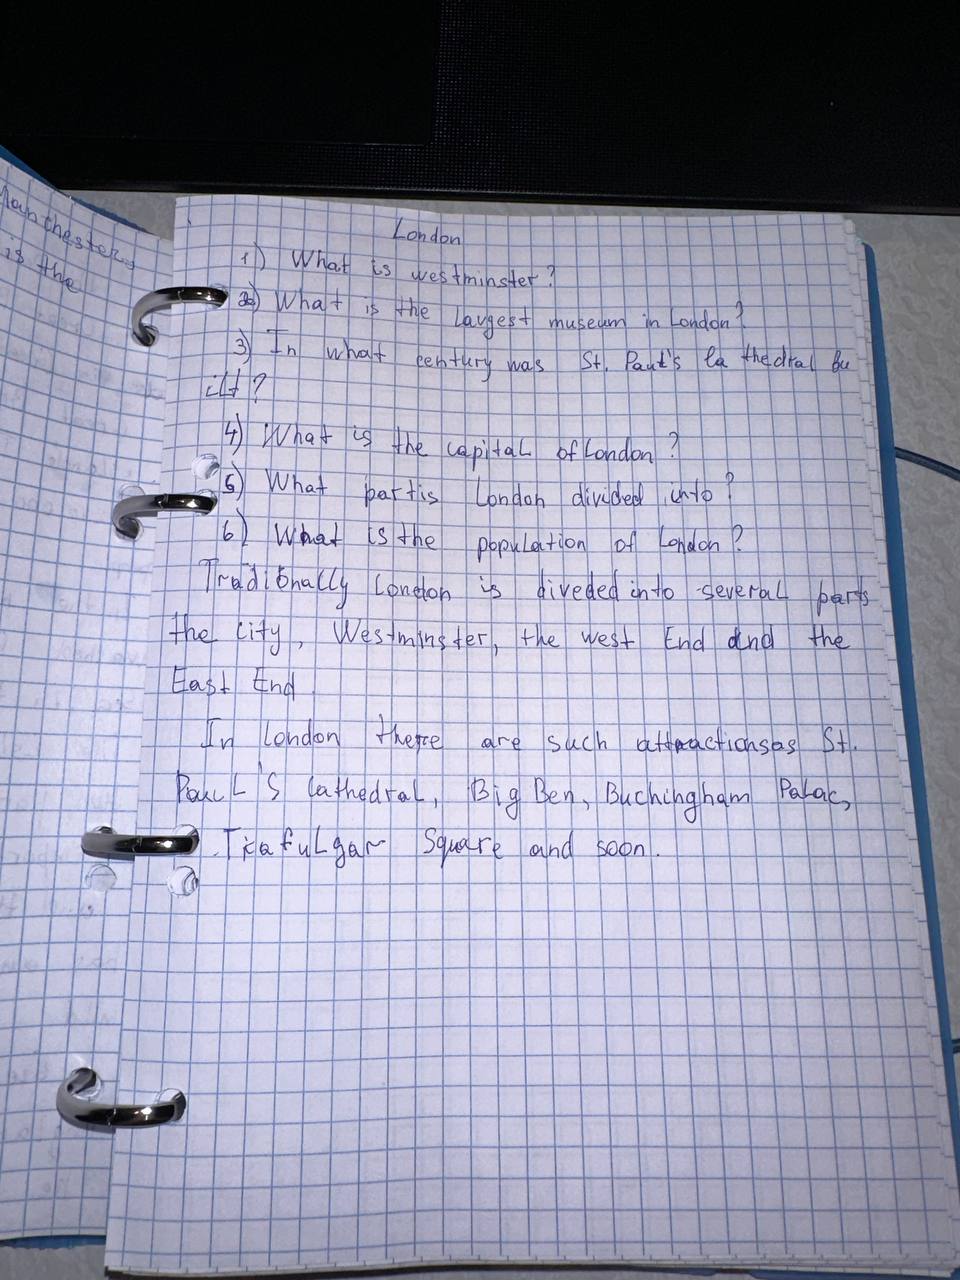 Manchester
is the
London
1) What is westminster?
2) What is the largest museum in London?
3) In what century was St. Paul's Ca thedral bu
ilt?
4) What is the capital of London?
5) What partis London divided into?
6) What is the population of London?
Traditionally London is diveded into several parts
the City, Westminster, the west End and the
East End
In London there are such attractionsas St.
Paul's Cathedral, Big Ben, Buchingham Palac,
Trafulgar Square and soon.